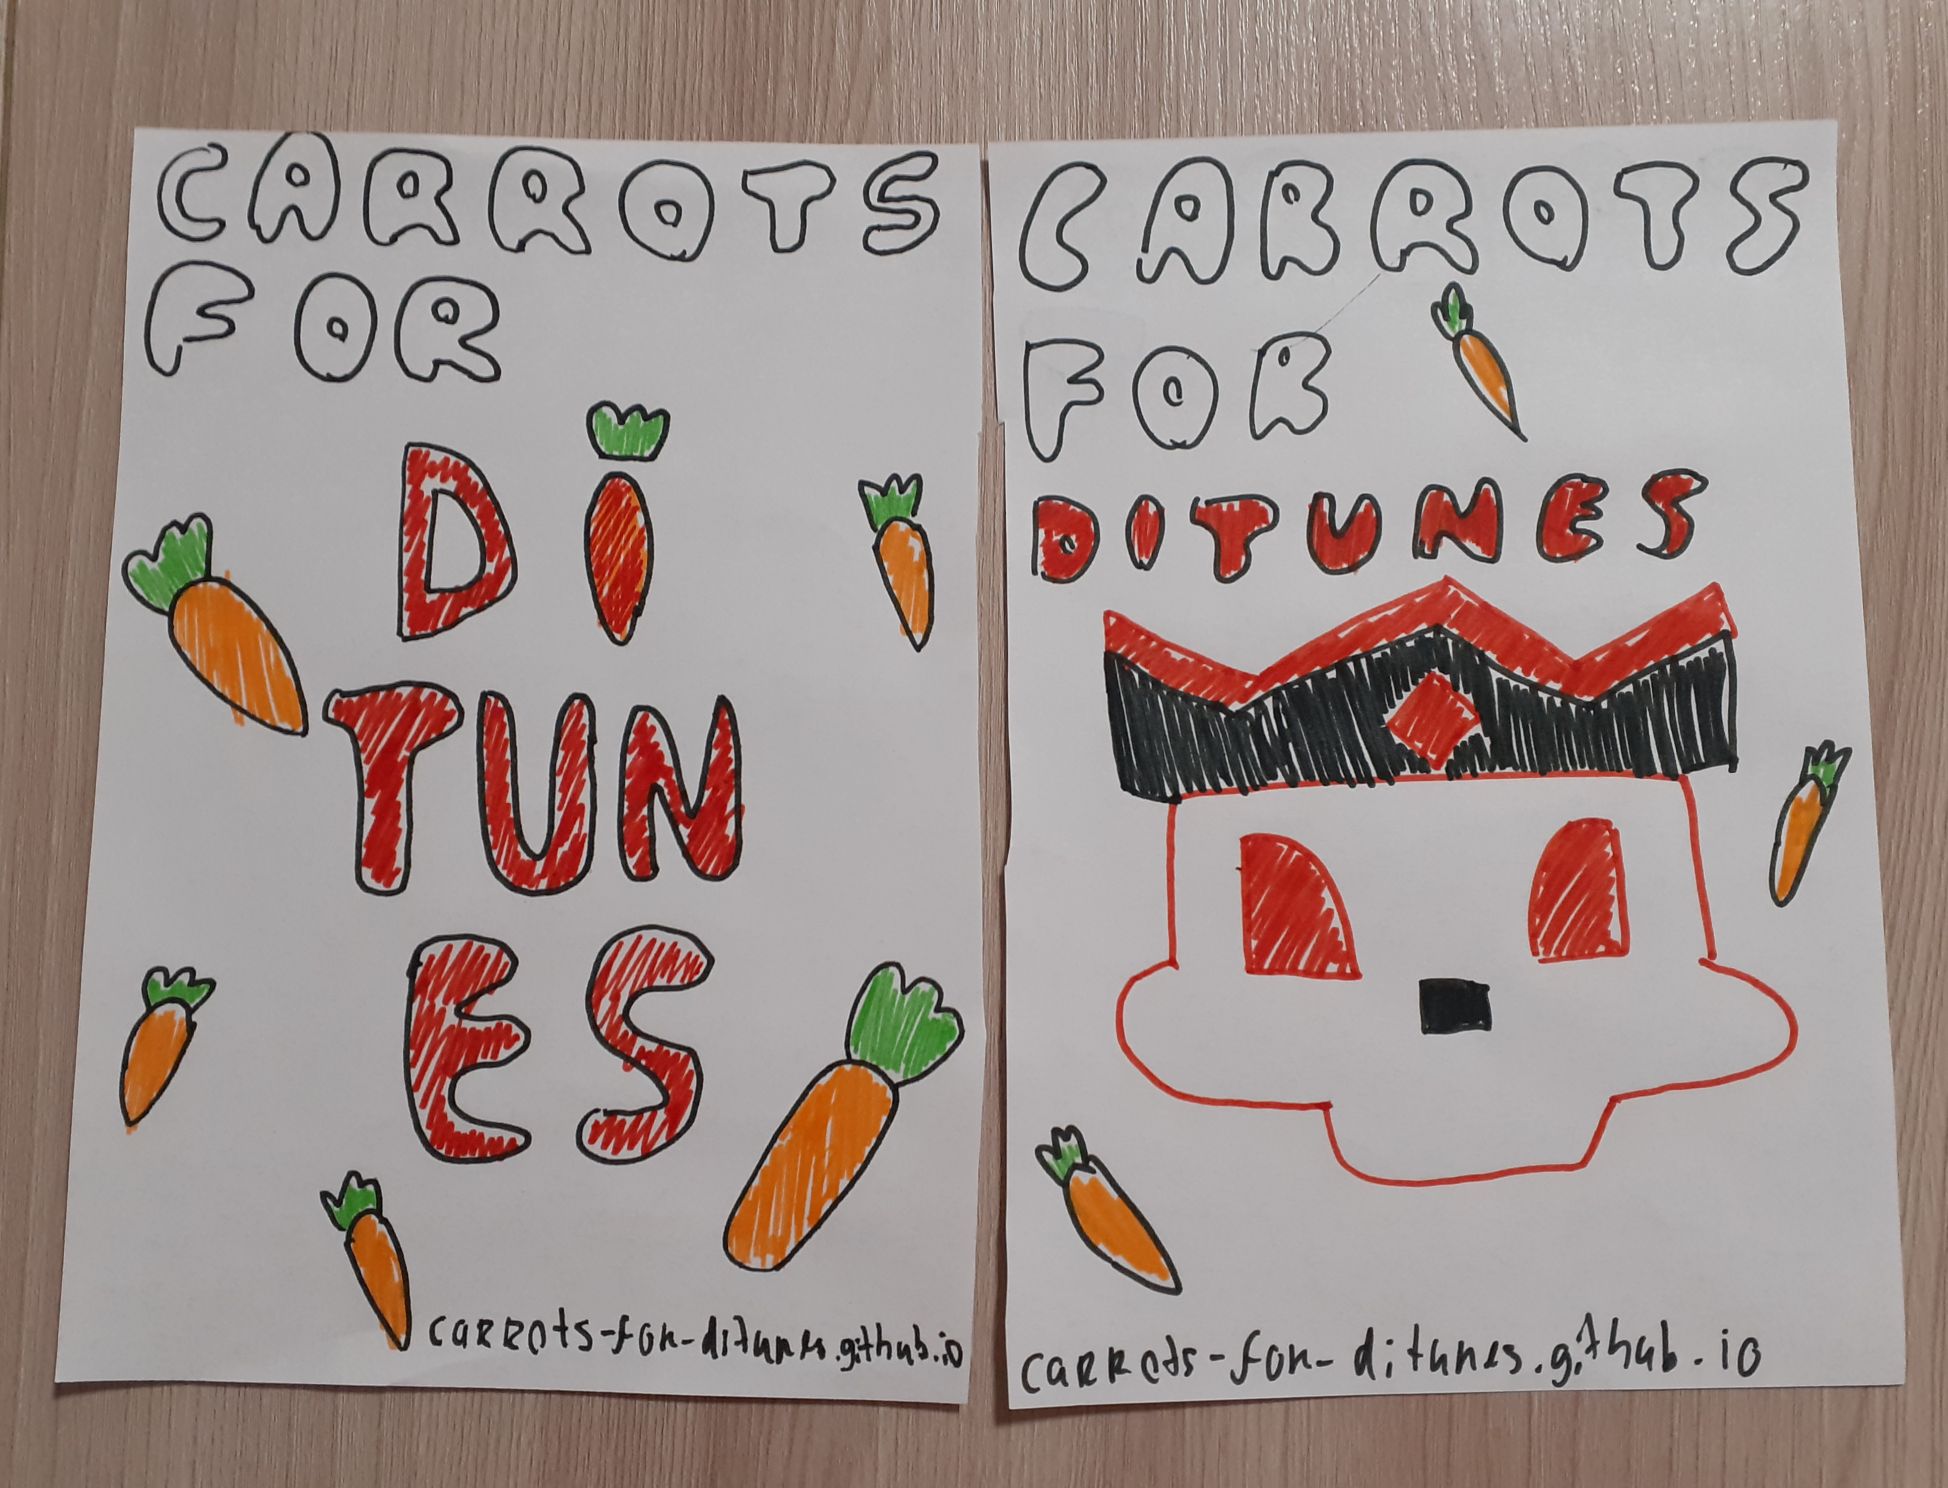 CARROTS
FOR
Di
TUN
ES
carrots-for-ditunes.github.io
CARROTS
FOR
DITUNES
carrots-for-ditunes.github.io